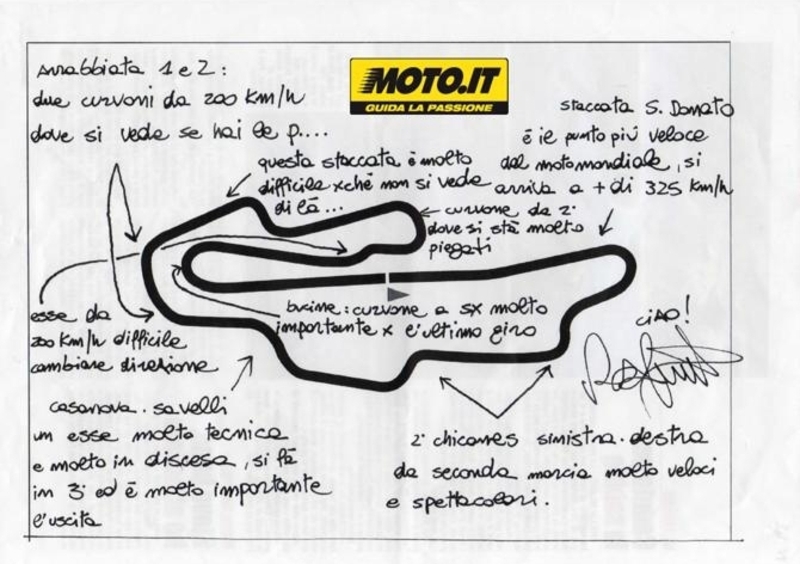 Arrabbiata 1 e 2:
due curvoni da 200 km/h
dove si vede se hai le p....
MOTO.IT
GUIDA LA PASSIONE
staccata S. Donato
è il punto più veloce
del motomondiale, si
arriva a + di 325 km/h
questa staccata è molto
difficile xché non si vede
di là...
curvone da 2ª
dove si stà molto
piegati
esse da
200 km/h difficile
cambiare direzione
bucine: curvone a sx molto
importante x l'ultimo giro
ciao!
casanova. savelli
un esse molto tecnica
e molto in discesa, si fà
in 3ª ed è molto importante
l'uscita
2 chicanes sinistra. destra
da seconda marcia molto veloci
e spettacolari.